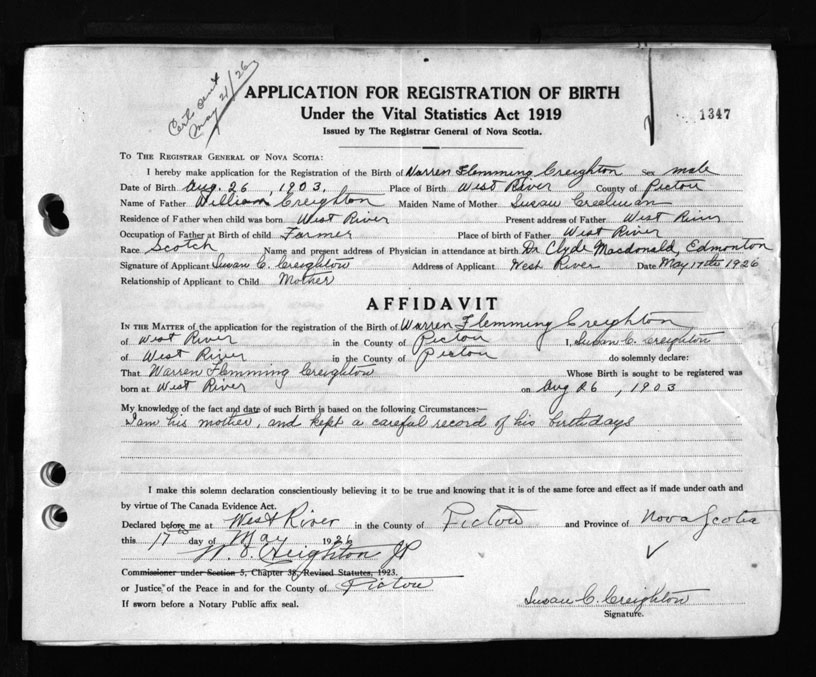 Cert sent
May 21/26
APPLICATION FOR REGISTRATION OF BIRTH
Under the Vital Statistics Act 1919
1347
Issued by The Registrar General of Nova Scotia.
To The Registrar General of Nova Scotia:
I hereby make application for the Registration of the Birth of Warren Flemming Creighton Sex male
Date of Birth Aug. 26, 1903. Place of Birth West River County of Pictou
Name of Father William Creighton Maiden Name of Mother Susan Creelman
Residence of Father when child was born West River Present address of Father West River
Occupation of Father at Birth of child Farmer Place of birth of Father West River
Race Scotch Name and present address of Physician in attendance at birth Dr Clyde Macdonald, Edmonton
Signature of Applicant Susan C. Creighton Address of Applicant West River Date May 17th 1926
Relationship of Applicant to Child Mother
AFFIDAVIT
In the Matter of the application for the registration of the Birth of Warren Flemming Creighton
of West River in the County of Pictou I, Susan C. Creighton
of West River in the County of Pictou do solemnly declare:
That Warren Flemming Creighton Whose Birth is sought to be registered was
born at West River on Aug 26, 1903
My knowledge of the fact and date of such Birth is based on the following Circumstances:—
I am his mother, and kept a careful record of his birthdays
I make this solemn declaration conscientiously believing it to be true and knowing that it is of the same force and effect as if made under oath and
by virtue of The Canada Evidence Act.
Declared before me at West River in the County of Pictou and Province of Nova Scotia
this 17th day of May 1926
Creighton JP
Commissioner under Section 5, Chapter 38, Revised Statutes, 1923.
or Justice of the Peace in and for the County of Pictou
If sworn before a Notary Public affix seal.
Susan C. Creighton
Signature.